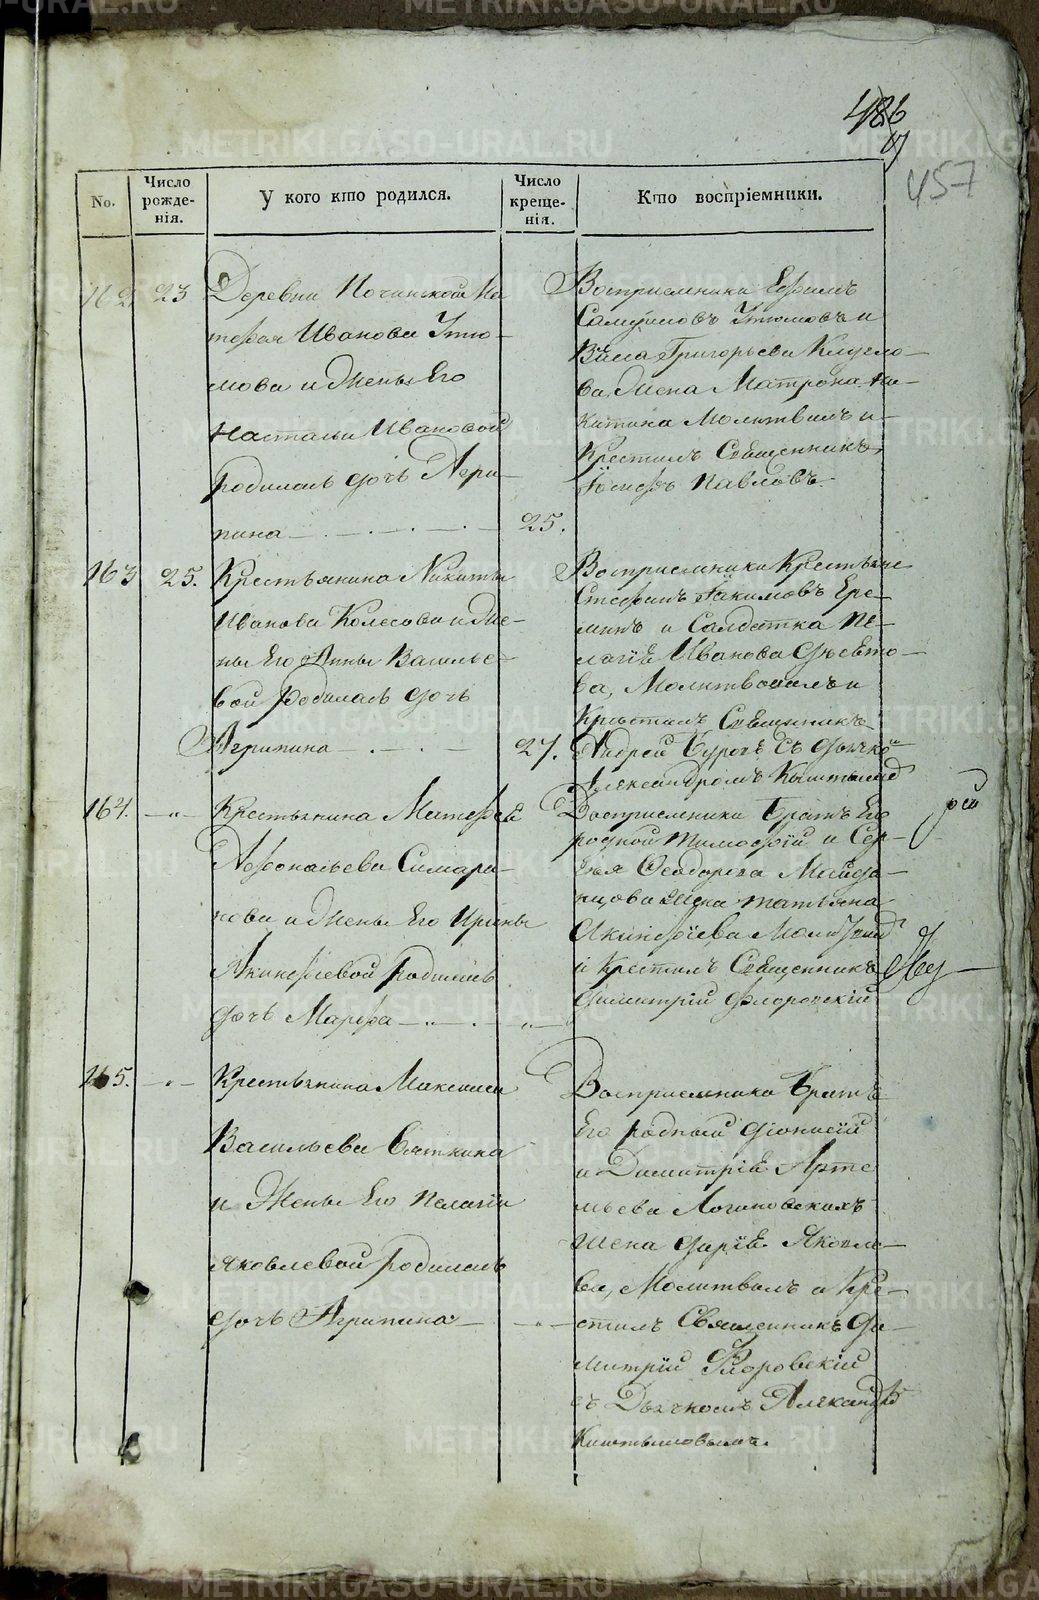 486
457
No.
Число рожде-нія.
У кого кто родился.
Число креще-нія.
Кто воспріемники.
162. 23
Деревни Починской На
Иванова Утю-
мова и жены Его
Настасьи Ивановой
родилась дочь Агри-
пина 25.
Восприемники Ефимъ
Самуиловъ Утюмовъ и
Григорьева
ва жена Матрона Ни-
китина Молитвилъ и
Крестилъ Священникъ
Іосифъ Павловъ.
163 25.
Крестьянина Никиты
Иванова Колесова и Же-
ны Его Анны Василье-
вой родилась дочь
Агрипина 27.
Восприемники Крестьяне
Стефанъ Іакимовъ Ере-
минъ и Салдатка Пе-
лагія Иванова
ва, Молитвовалъ и
Крестилъ Священникъ
Андрей Съ дьячко
Александромъ
164.
Крестьянина Матфея
Афонасьева Симари-
кова и Жены Его Ирины
Акинфіевой родилась
дочь Марфа
Восприемники Братъ Его
родной Тимофій и Сер-
гѣя Феодорова Майда-
нцова жена Татьяна
Акинфіева
и Крестилъ Священникъ
Димитрій Флоровскій
165.
Крестьянина Максима
Васильева Вяткина
и Жены Его Пелагіи
Яковлевой родилась
дочь Агрипина
Восприемники Братъ
Его родный Діонисій
и Димитрія Арте
мьева Логиновскихъ
жена Дарія Яковле-
ва, Молитвилъ и Кре-
стилъ Священникъ Ди-
митрій Флоровскій
съ Дьячкомъ Александ
Киштымовымъ.
METRIKI.GASO-URAL.RU